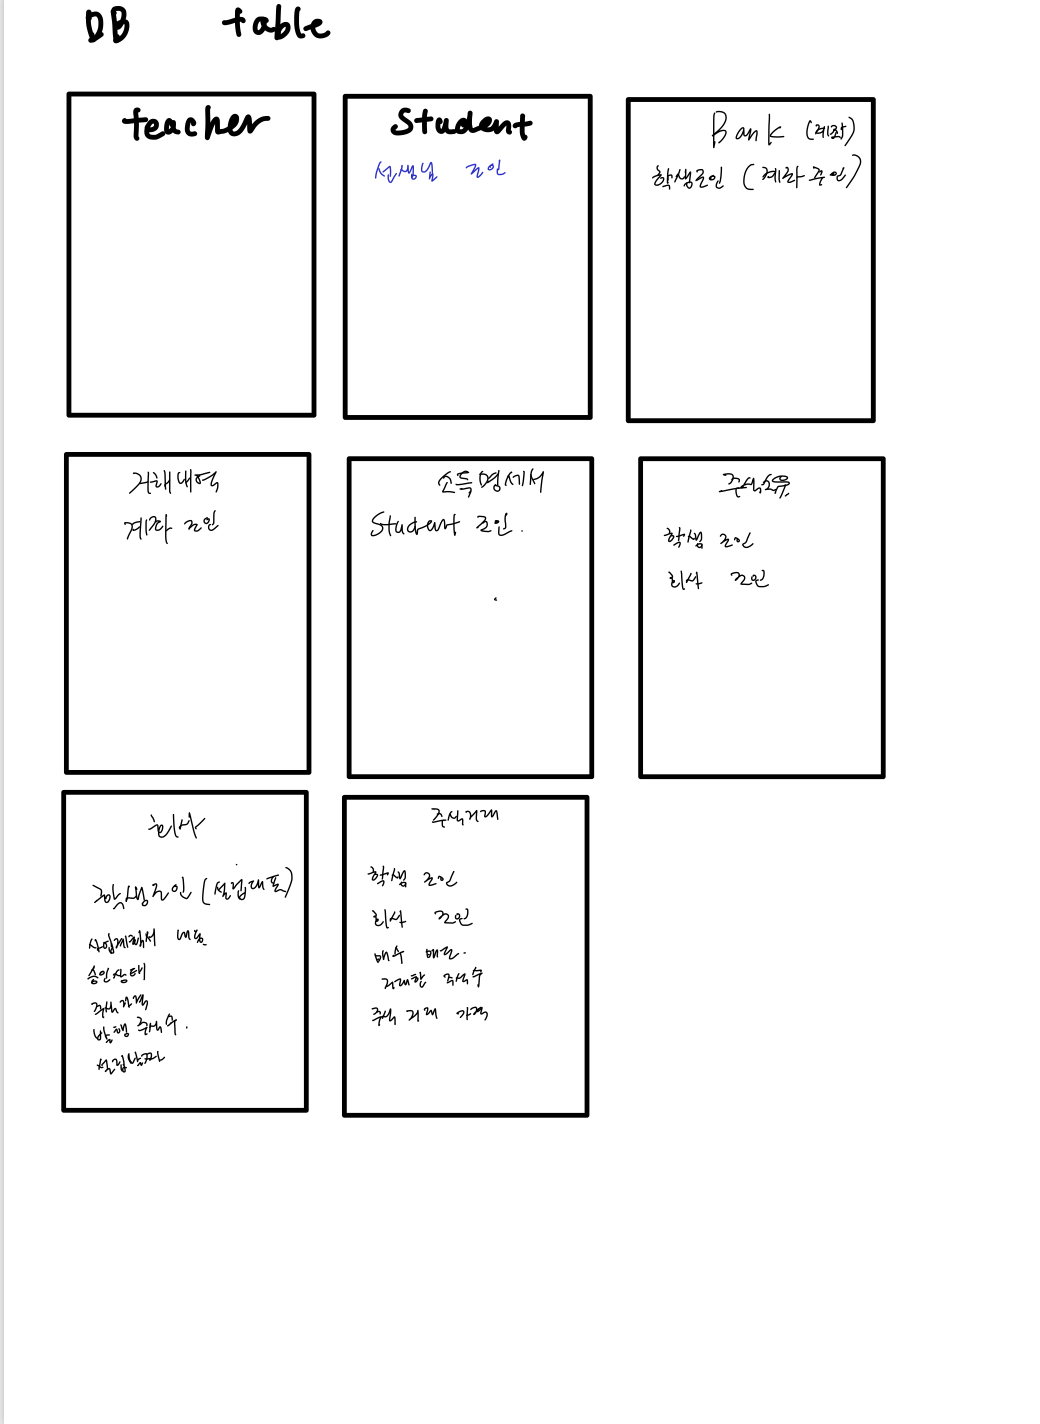 DB table
teacher
Student
선생님 조인
Bank (계좌)
학생조인 (계좌주인)
거래내역
계좌 조인
소득명세서
Student 조인.
주식소유
학생 조인
회사 조인
회사
학생조인 (설립대표)
사업계획서 내용
승인상태
주식가격
발행 주식수.
설립날짜
주식거래
학생 조인
회사 조인
매수 매도.
거래한 주식수
주식 거래 가격